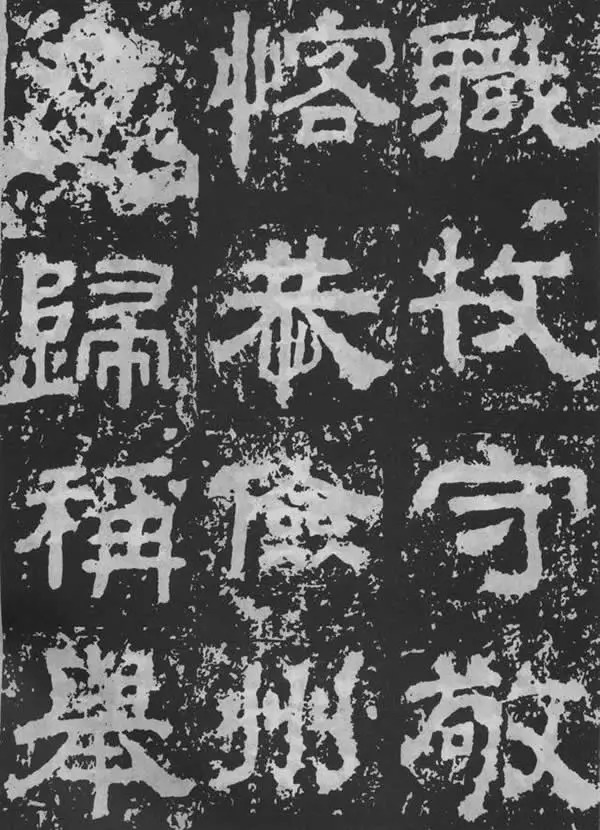 職牧守敬
愘恭儉州
歸稱舉